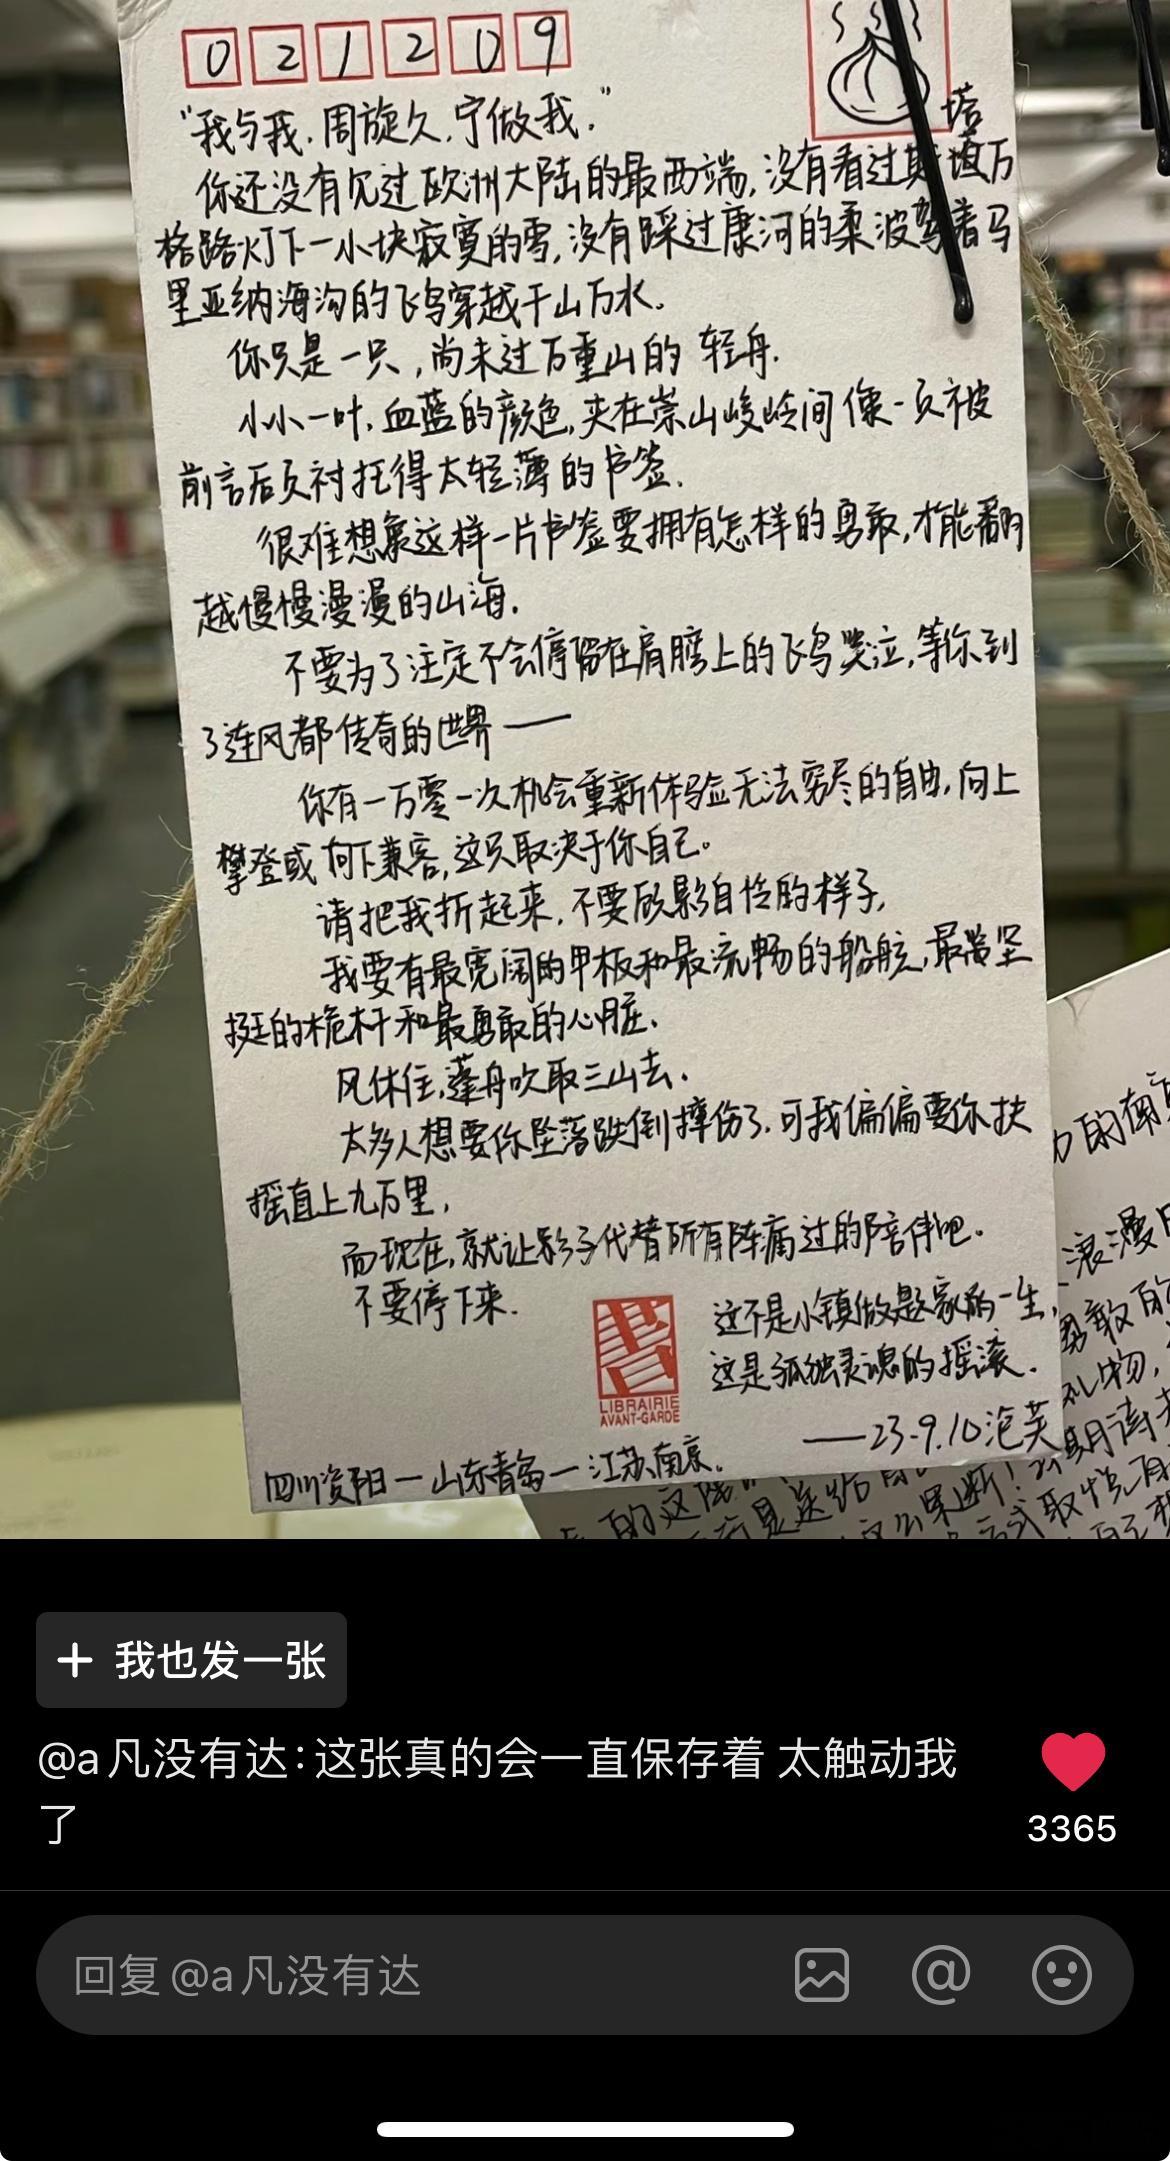 021209
"我与我,周旋久,宁做我。"
塔
你还没有见过欧洲大陆的最西端,没有看过斯 万
格路灯下一小块寂寞的雪,没有踩过康河的柔波驾着马
里亚纳海沟的飞鸟穿越千山万水。
你只是一只,尚未过万重山的 轻舟.
小小一叶,血蓝的颜色,夹在崇山峻岭间像一页被
前言后页衬托得太轻薄的书签.
很难想象这样一片书签要拥有怎样的勇敢,才能翻
越慢慢漫漫的山海.
不要为了注定不会停留在肩膀上的飞鸟哭泣,等你到
了连风都传奇的世界——
你有一万零一次机会重新体验无法穷尽的自由,向上
攀登或向下兼容,这只取决于你自己。
请把我折起来,不要顾影自怜的样子,
我要有最宽阔的甲板和最流畅的船舷,最坚
挺的桅杆和最勇敢的心脏.
风休住,蓬舟吹取三山去.
太多人想要你坠落跌倒摔伤了,可我偏偏要你扶
摇直上九万里,
而现在,就让影子代替所有阵痛过的陪伴吧。
不要停下来.
这不是小镇做题家的一生,
这是孤独灵魂的摇滚.
LIBRAIRIE
AVANT-GARDE
——23.9.10泡芙
四川资阳一山东青岛一江苏南京.
我也发一张
@a凡没有达:这张真的会一直保存着 太触动我
了
3365
回复 @a凡没有达